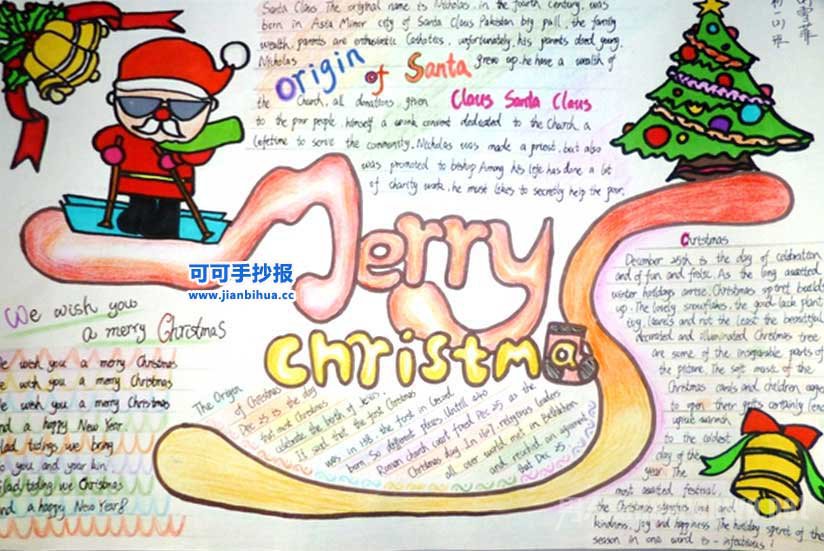 Santa Claus The original name is Nicholas, in the fourth century, was
born in Asia Minor city of Santa Claus Pakistan big pull, the family
wealth, parents are enthusiastic Catholics, unfortunately, his parents died young.
Nicholas grew up, he have a wealth of
origin of Santa
Claus Santa Claus
the Church, all donations given
to the poor people, himself a convent dedicated to the Church, a
lifetime to serve the community, Nicholas was made a priest, but also
was promoted to bishop Among his life has done a lot
of charity work, he most likes to secretly help the poor.
Merry
christmas
可可手抄报
www.jianbihua.cc
We wish you
a merry Christmas
we wish you a merry Christmas
we wish you a merry Christmas
we wish you a merry Christmas
and a happy New Year.
Glad tidings we bring
To you and your kin
Glad tiding we Christmas
and a happy New Year!
The Origin
of Christmas
Dec 25 is the day
that most Christmas
celebrate the birth of Jesus.
It said that the first Christmas
was in 138, the first in Second
born. So different places. Until who
Roman church court fixed Dec 25 as the
Christmas day In 1617, religious leaders
all over world met in Bethlehem
and reached an agreement
that Dec 25.
Christmas
December 25th is the day of celebration
and of fun and frolic. As the long awaited
winter holidays arrive, Christmas spiret builds
up. The lovely snowflakes, the good-lack plant
ivy, laurels and not the least the beautiful
decorated and illuminated Christmas tree
are some of the inseparable parts of
the picture. The soft music of the
Christmas carols and children eager
to open their gifts certainly lend
warmth
to the coldest
day of the
year. The
most awaited festival,
the Christmas signifies love and
kindness, joy and happiness The holiday spiret of the
season in one word is - infectious!